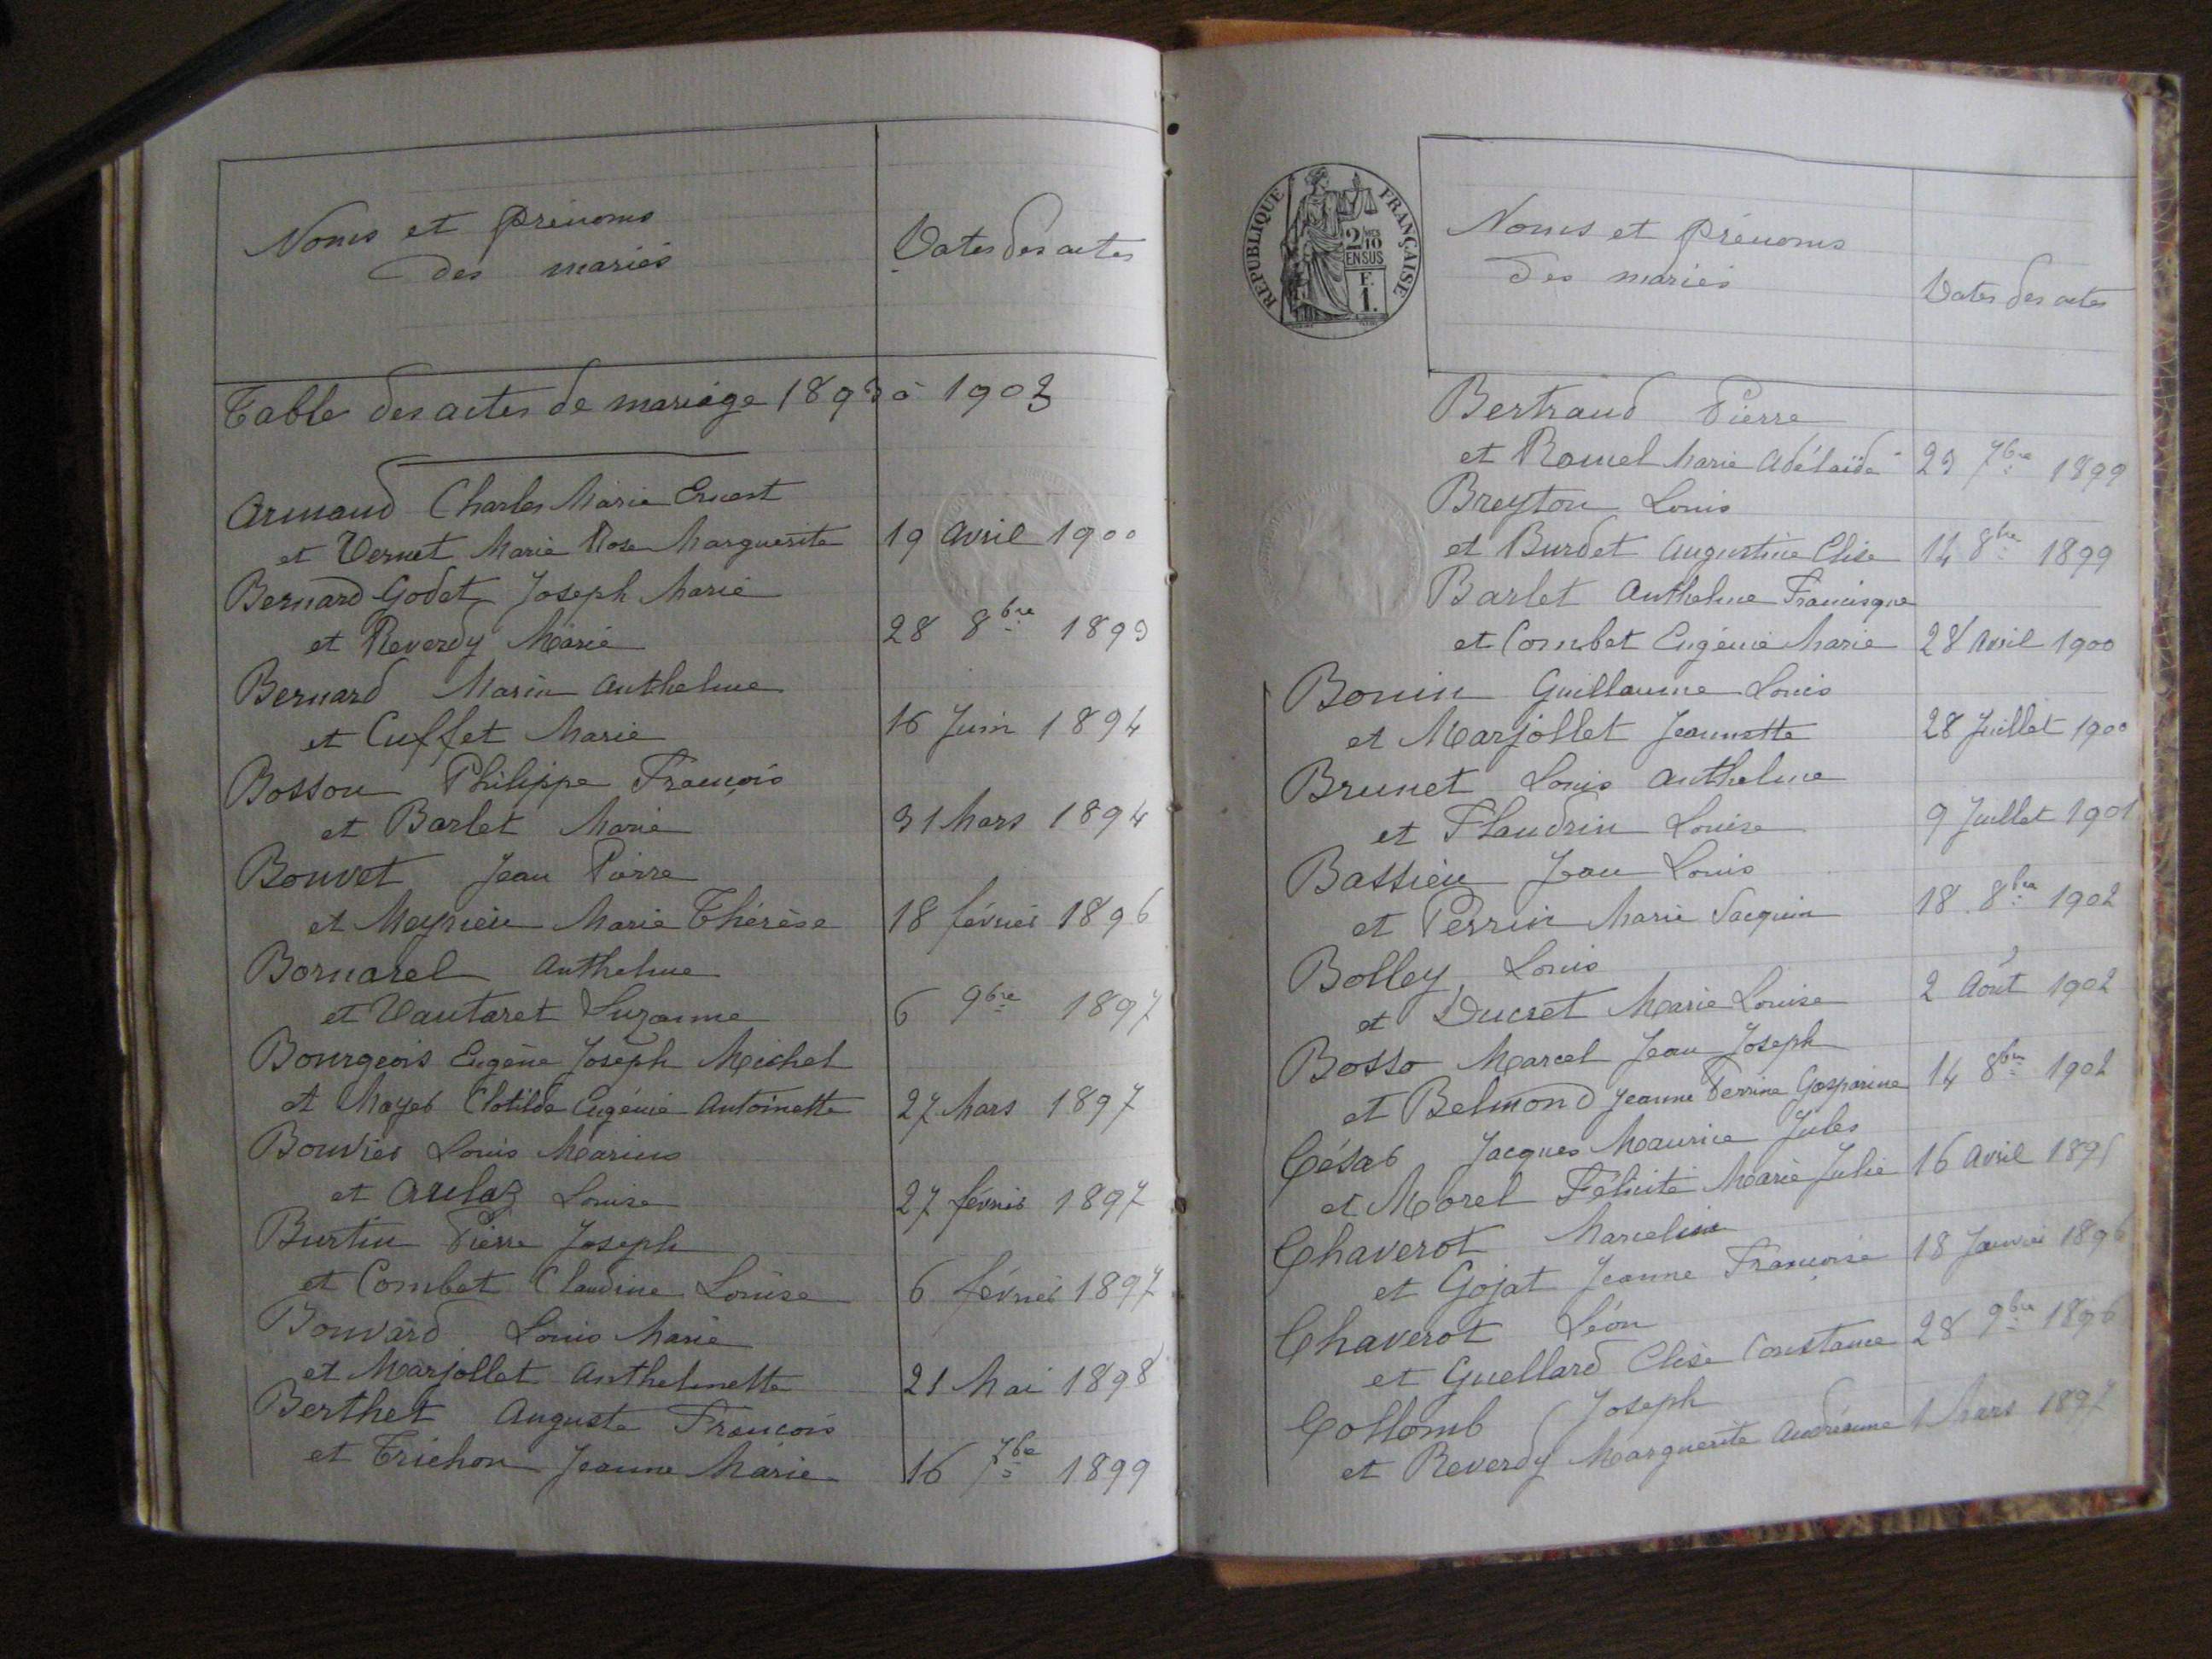 Noms et prénoms
des mariés
Dates des actes
Table des actes de mariage 1893 à 1903
Armand Charles Marie Ernest
et Vernet Marie Rose Marguerite 19 avril 1900
Bernard Godet Joseph Marie
et Reverdy Marie 28 8bre 1893
Bernard Marin Anthelme
et Cuffet Marie 16 Juin 1894
Bosson Philippe François
et Barlet Marie 31 Mars 1894
Bouvet Jean Pierre
et Meyrieu Marie Thérèse 18 février 1896
Bornarel Anthelme
et Vautaret Suzanne 6 9bre 1897
Bourgeois Eugène Joseph Michel
et Mayer Clotilde Eugénie Antoinette 27 Mars 1897
Bouvier Louis Marius
et Arulaz Louise 27 février 1897
Burtin Pierre Joseph
et Combet Claudine Louise 6 février 1897
Bouvard Louis Marie
et Marjollet Anthelmette 21 Mai 1898
Berthet Auguste François
et Trichon Jeanne Marie 16 7bre 1899
RÉPUBLIQUE FRANÇAISE
2/10
EN SUS
F.
1.
Noms et prénoms
des mariés
Dates des actes
Bertrand Pierre
et Ramel Marie Adélaïde 23 7bre 1899
Breyton Louis
et Burdet Augustine Elise 14 8bre 1899
Barlet Anthelme Francisque
et Combet Eugénie Marie 28 avril 1900
Bonin Guillaume Louis
et Marjollet Jeannette 28 Juillet 1900
Brunet Louis Anthelme
et Flaudrin Louise 9 Juillet 1901
Bassieu Jean Louis
et Perrin Marie Jacquin 18 8bre 1902
Bolley Louis
et Ducret Marie Louise 2 Août 1902
Bosso Marcel Jean Joseph
et Belmond Jeanne Perrine Gasparine 14 8bre 1902
César Jacques Maurice Jules
et Morel Félicité Marie Julie 16 avril 1895
Chaverot Marcelin
et Gojat Jeanne Françoise 18 Janvier 1896
Chaverot Léon
et Guellard Elise Constance 28 9bre 1896
Collomb Joseph
et Reverdy Marguerite Andréanne 1 Mars 1897